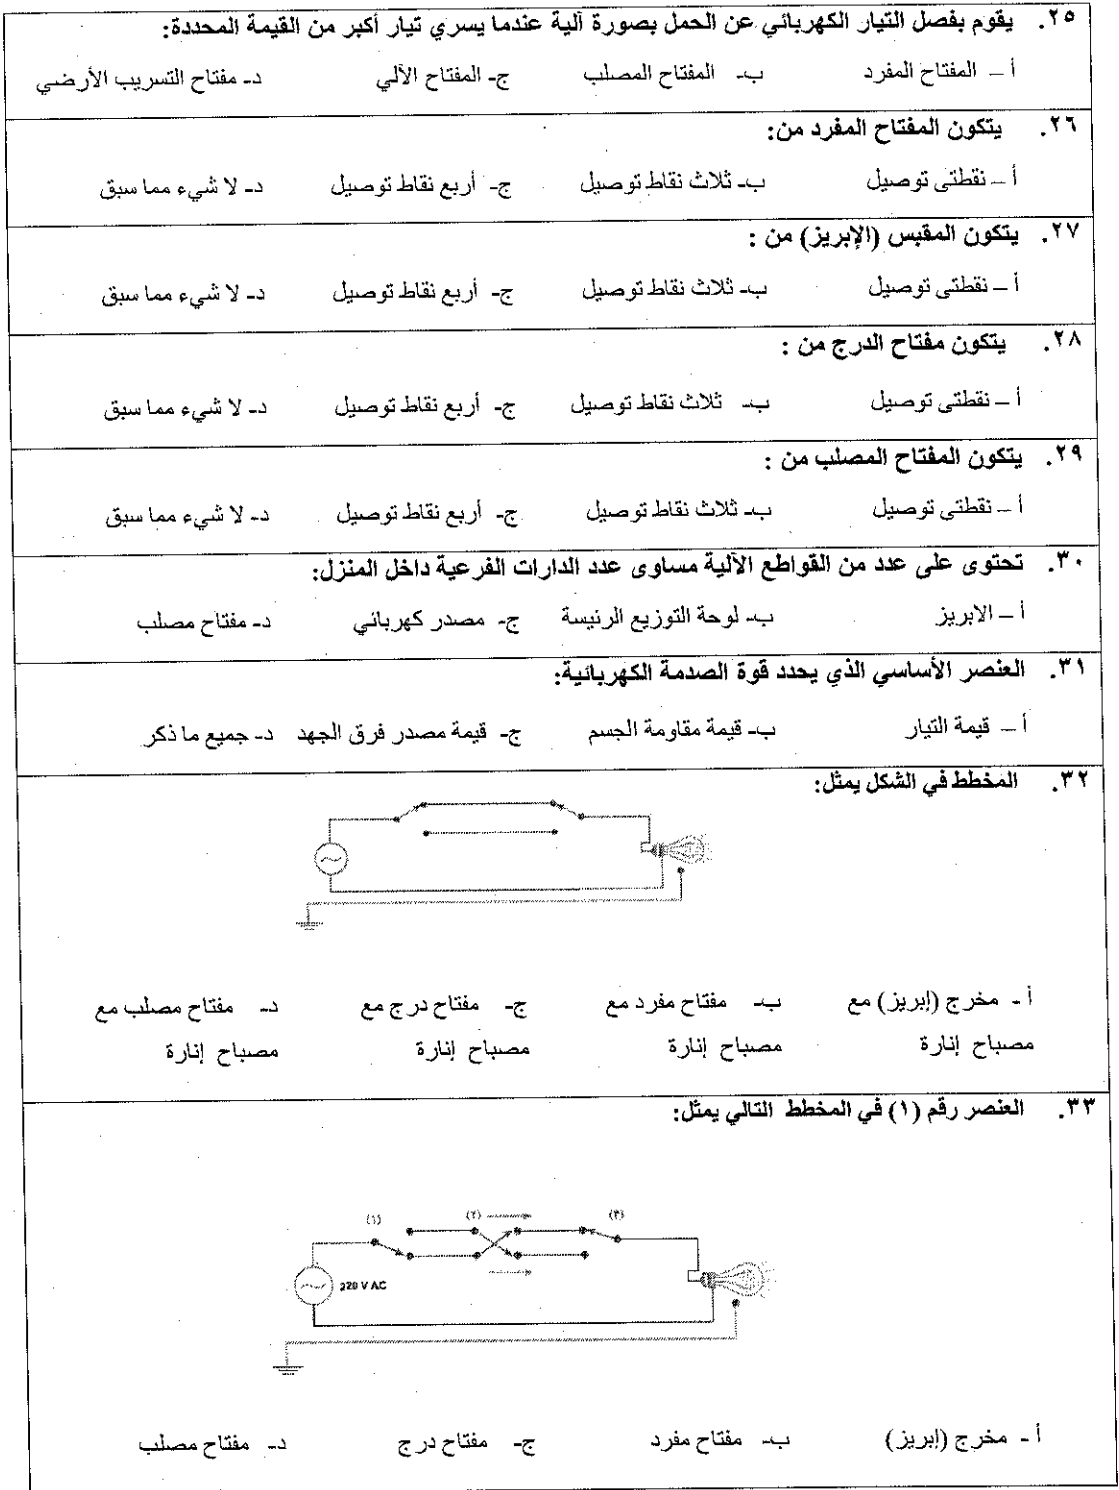 ٢٥. يقوم بفصل التيار الكهربائي عن الحمل بصورة آلية عندما يسري تيار أكبر من القيمة المحددة:
أ – المفتاح المفرد ب- المفتاح المصلب ج- المفتاح الآلي د- مفتاح التسريب الأرضي
٢٦. يتكون المفتاح المفرد من:
أ – نقطتى توصيل ب- ثلاث نقاط توصيل ج- أربع نقاط توصيل د- لا شيء مما سبق
٢٧. يتكون المقبس (الإبريز) من :
أ – نقطتى توصيل ب- ثلاث نقاط توصيل ج- أربع نقاط توصيل د- لا شيء مما سبق
٢٨. يتكون مفتاح الدرج من :
أ – نقطتى توصيل ب- ثلاث نقاط توصيل ج- أربع نقاط توصيل د- لا شيء مما سبق
٢٩. يتكون المفتاح المصلب من :
أ – نقطتى توصيل ب- ثلاث نقاط توصيل ج- أربع نقاط توصيل د- لا شيء مما سبق
٣٠. تحتوى على عدد من القواطع الآلية مساوى عدد الدارات الفرعية داخل المنزل:
أ – الابريز ب- لوحة التوزيع الرئيسة ج- مصدر كهربائي د- مفتاح مصلب
٣١. العنصر الأساسي الذي يحدد قوة الصدمة الكهربائية:
أ – قيمة التيار ب- قيمة مقاومة الجسم ج- قيمة مصدر فرق الجهد د- جميع ما ذكر
٣٢. المخطط في الشكل يمثل:
أ - مخرج (إبريز) مع ب- مفتاح مفرد مع ج- مفتاح درج مع د- مفتاح مصلب مع
مصباح إنارة مصباح إنارة مصباح إنارة مصباح إنارة
٣٣. العنصر رقم (١) في المخطط التالي يمثل:
(١) (٢) (٣)
220 V AC
أ - مخرج (إبريز) ب- مفتاح مفرد ج- مفتاح درج د- مفتاح مصلب